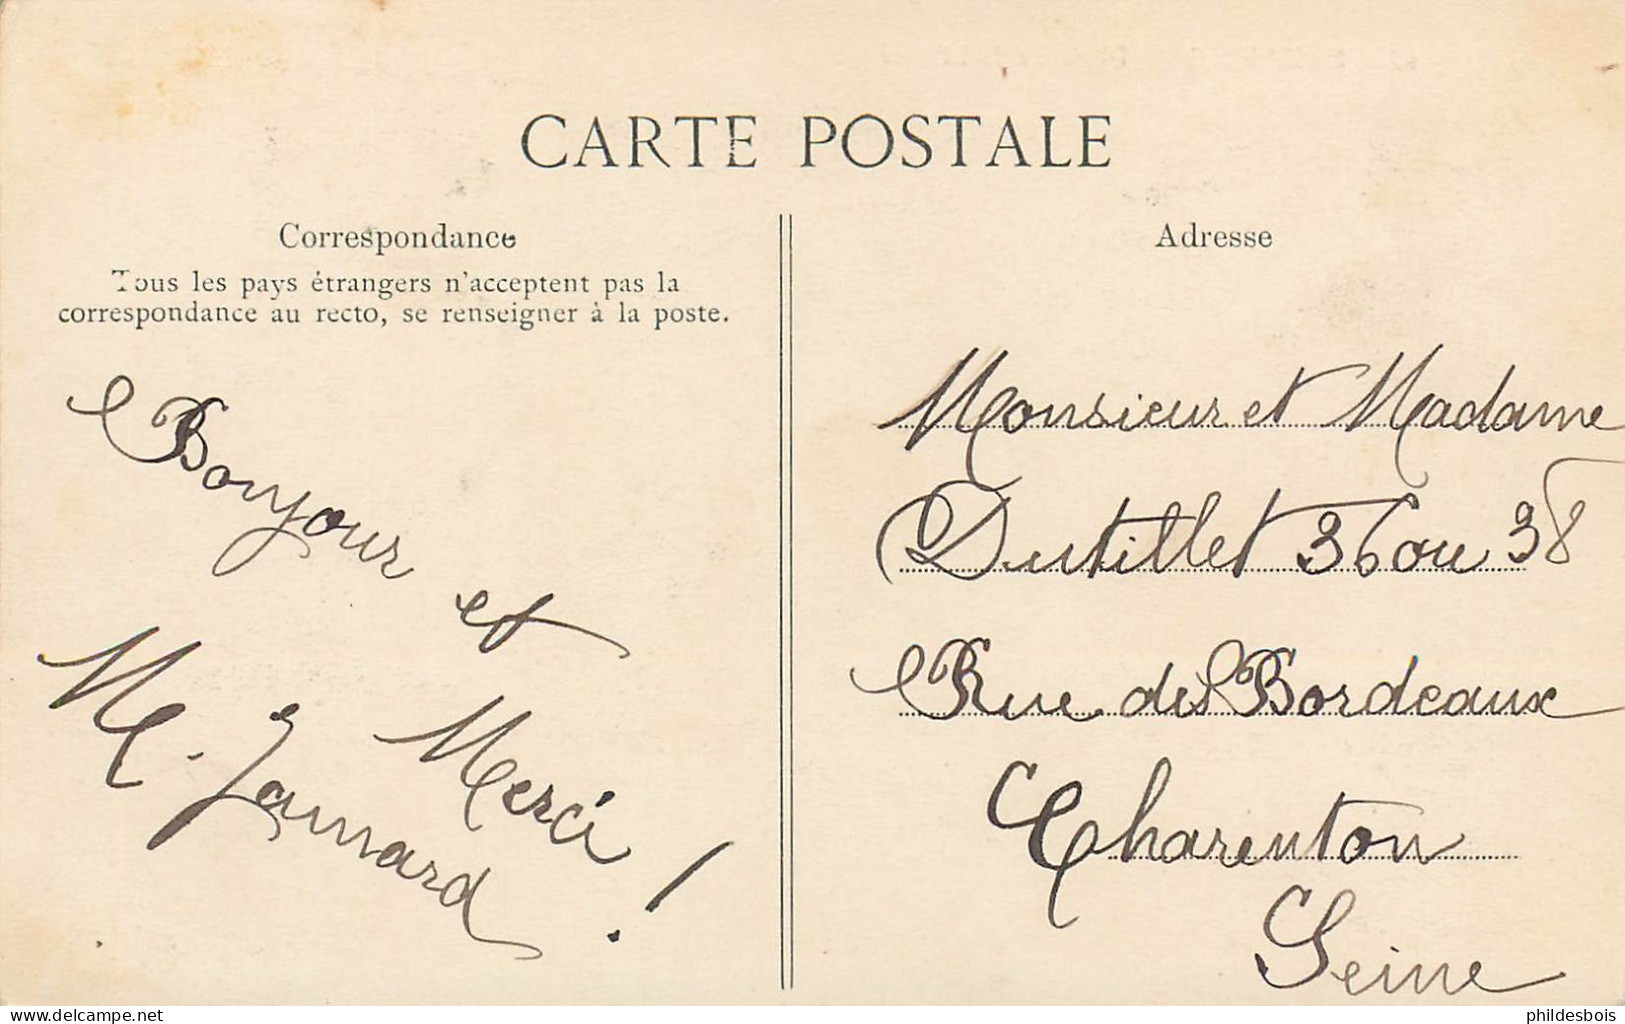 CARTE POSTALE
Correspondance
Tous les pays étrangers n'acceptent pas la
correspondance au recto, se renseigner à la poste.
Bonjour et
Merci !
M.
Adresse
Monsieur et Madame
Dutillet 36 ou 38
Rue des Bordeaux
Charenton
Seine
delcampe.net
phildesbois